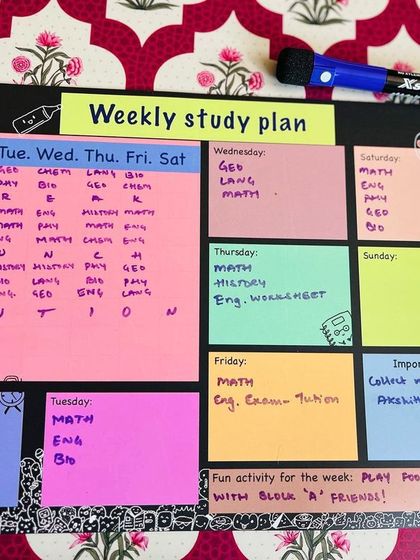 Weekly study plan
Tue. Wed. Thu. Fri. Sat
GEO CHEM LANG BIO
PHY BIO GEO CHEM
R E A K
MATH ENG HISTORY MATH
MATH PHY MATH ENG
ENG MATH CHEM ENG
U N C H
HISTORY HISTORY PHY GEO
ENG LANG BIO PHY
ENG. GEO ENG LANG
U T I O N
Tuesday:
MATH
ENG
BIO
Wednesday:
GEO
LANG
MATH
Thursday:
MATH
HISTORY
Eng. WORKSHEET
Friday:
MATH
Eng. Exam- Tution
Saturday:
MATH
ENG
PHY
GEO
BIO
Sunday:
Impor
Collect
Akshit
Fun activity for the week: PLAY FOO
WITH BLOCK 'A' FRIENDS!